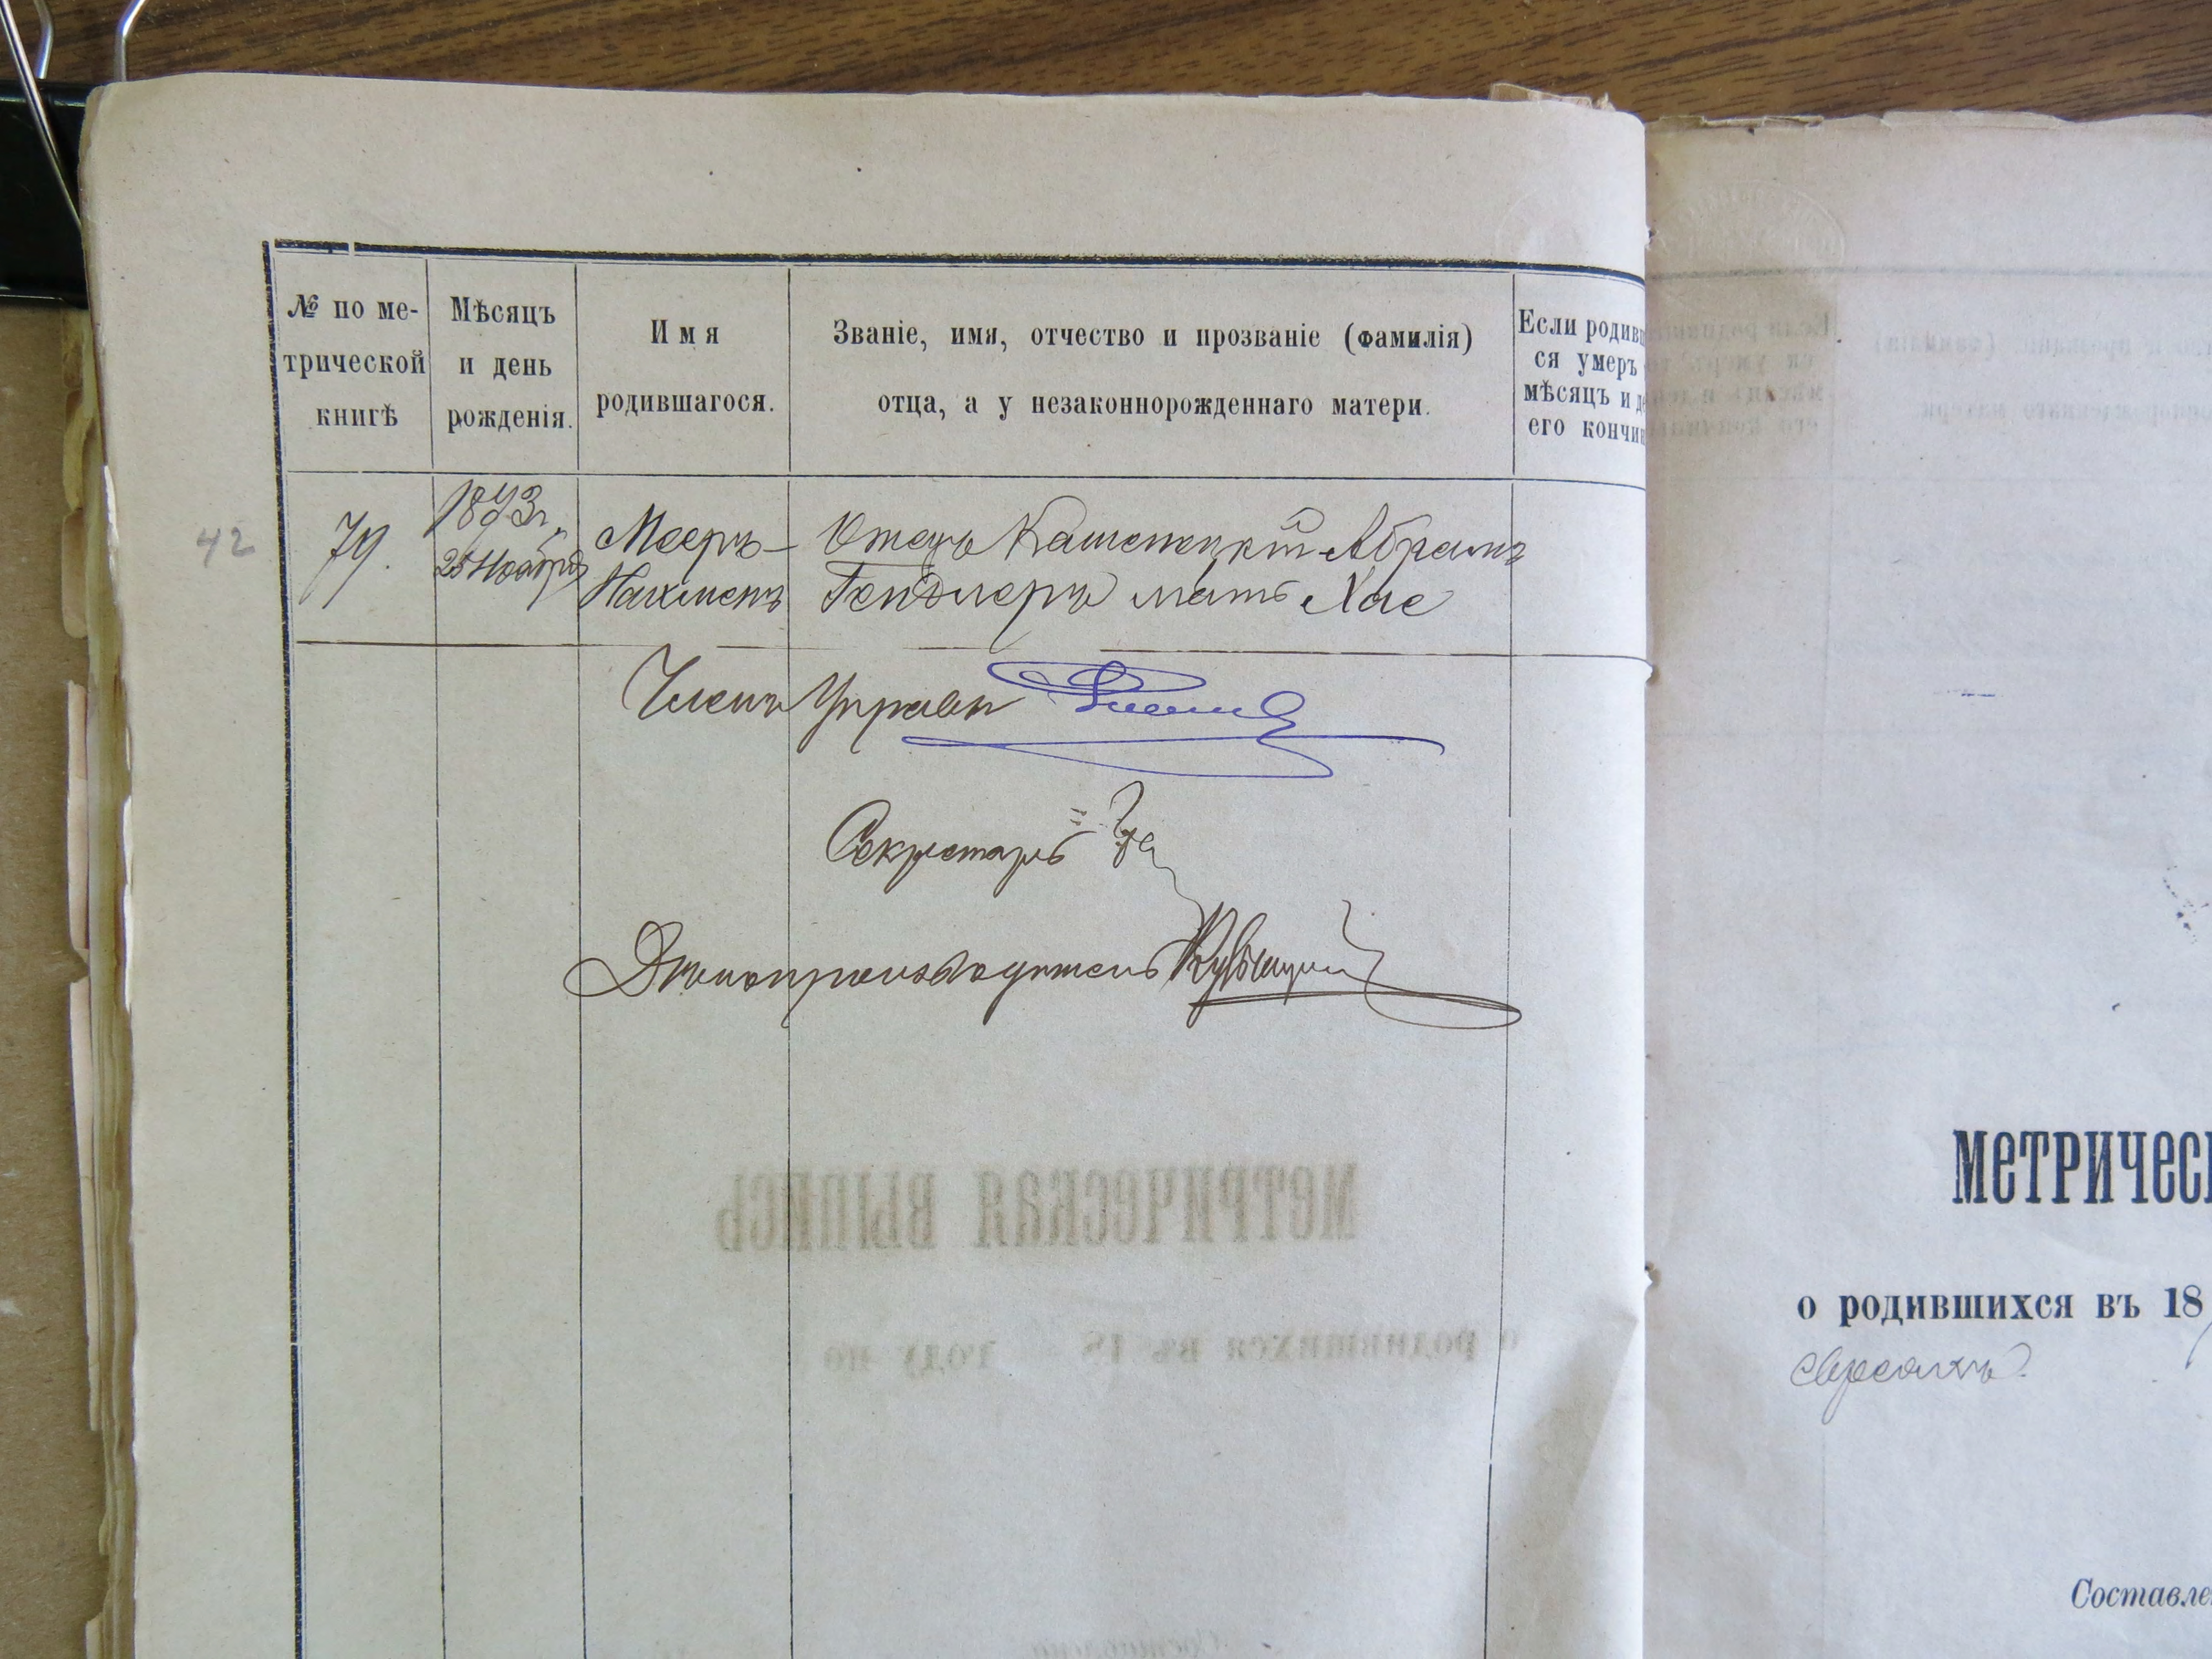 № по ме-
трической
книгѣ
Мѣсяцъ
и день
рожденія.
Имя
родившагося.
Званіе, имя, отчество и прозваніе (фамилія)
отца, а у незаконнорожденнаго матери.
Если родивш
ся умеръ
мѣсяцъ и де
его кончин
42
79.
1873г.
25 Ноября
Мееръ-
Нахменъ
Отецъ Кашепецкій Абрамъ
Гендлеръ мать Хае
Членъ Управы
Секретарь
Дѣлопроизводитель
МЕТРИЧЕСКАЯ ВЫПИСЬ
о родившихся въ 18 году по
МЕТРИЧЕС
о родившихся въ 18
Составле